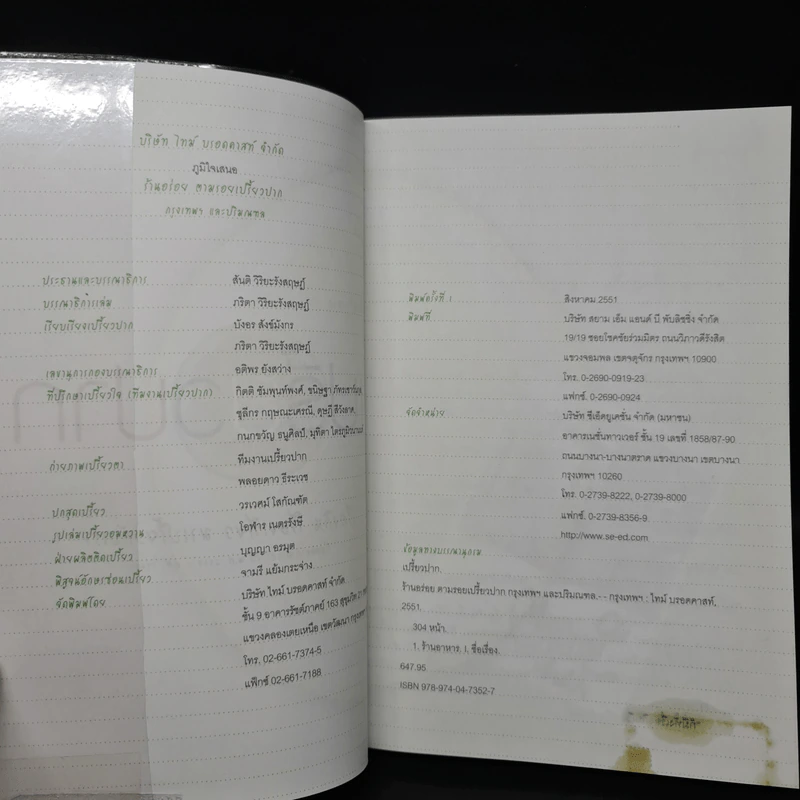 บริษัท ไทม์ บรอดคาสท์ จำกัด
ภูมิใจเสนอ
ร้านอร่อย ตามรอยเปรี้ยวปาก
กรุงเทพฯ และปริมณฑล
ประธานและบรรณาธิการ สันติ วิริยะรังสฤษฎ์
บรรณาธิการเล่ม ภริตา วิริยะรังสฤษฎ์
เรียบเรียงเปรี้ยวปาก บังอร สังข์มังกร
ภริตา วิริยะรังสฤษฎ์
เลขานุการกองบรรณาธิการ อติพร ยังสว่าง
ที่ปรึกษาเปรี้ยวใจ (ทีมงานเปรี้ยวปาก) กิตติ ชัมพุนท์พงศ์, ชนิษฐา
ชุลีกร กฤษณะเศรณี, ดุษฎี
กนกขวัญ ธนูศิลป์, มุทิตา
ถ่ายภาพเปรี้ยวตา ทีมงานเปรี้ยวปาก
พลอยดาว ธีระเวช
ปกสุดเปรี้ยว วรเวศม์ โสภัณฑ์ต
รูปเล่มเปรี้ยวอมหวาน โอฬาร เนตรรังษี
ฝ่ายผลิตติดเปรี้ยว บุญญา อรมุต
พิสูจน์อักษรซ่อนเปรี้ยว จามรี แย้มกระจ่าง
จัดพิมพ์โดย บริษัท ไทม์ บรอดคาสท์ จำกัด
ชั้น 9 อาคารรัชต์ภาคย์ 163 สุขุมวิท 21
แขวงคลองเตยเหนือ เขตวัฒนา
โทร. 02-661-7374-5
แฟ็กซ์ 02-661-7188
พิมพ์ครั้งที่ 1 สิงหาคม 2551
พิมพ์ที่ บริษัท สยาม เอ็ม แอนด์ บี พับลิชชิ่ง จำกัด
19/19 ซอยโชคชัยร่วมมิตร ถนนวิภาวดีรังสิต
แขวงจอมพล เขตจตุจักร กรุงเทพฯ 10900
โทร. 0-2690-0919-23
แฟกซ์. 0-2690-0924
จัดจำหน่าย บริษัท ซีเอ็ดยูเคชั่น จำกัด (มหาชน)
อาคารเนชั่นทาวเวอร์ ชั้น 19 เลขที่ 1858/87-90
ถนนบางนา-บางนาตราด แขวงบางนา เขตบางนา
กรุงเทพฯ 10260
โทร. 0-2739-8222, 0-2739-8000
แฟกซ์. 0-2739-8356-9
http://www.se-ed.com
ข้อมูลทางบรรณานุกรม
เปรี้ยวปาก.
ร้านอร่อย ตามรอยเปรี้ยวปาก กรุงเทพฯ และปริมณฑล.-- กรุงเทพฯ : ไทม์ บรอดคาสท์,
2551.
304 หน้า.
1. ร้านอาหาร. I. ชื่อเรื่อง.
647.95
ISBN 978-974-04-7352-7